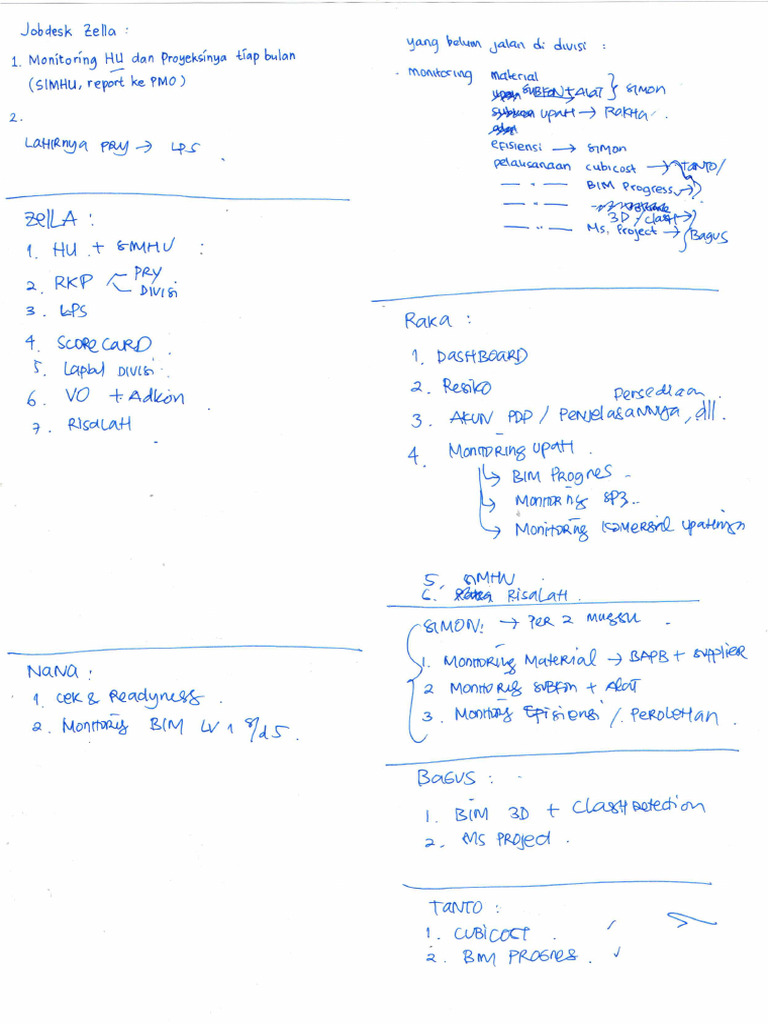 Jobdesk Zella :
1. Monitoring HU dan Proyeksinya tiap bulan
(SIMHU, report ke PMO)
2.
LAHIRNYA PRY → LPS
ZELLA :
1. HU + SIMHU :
2. RKP PRY
DIVISI
3. LPS
4. SCORECARD
5. Lapbul DIVISI
6. VO + Adkon
7. RISALAH
NANA :
1. CEK & Readyness
2. Monitoring BIM LV 1 s/d 5.
yang belum jalan di divisi :
- monitoring material
SUBKON + ALAT } SIMON
UPAH → RAKHA
efisiensi → SIMON
pelaksanaan cubicost → TANTO/
— " — BIM Progress →
— " —
3D / clash →
— " — Ms. Project → Bagus
RAKA :
1. DASHBOARD
2. Resiko
Persediaan
3. AKUN PDP / PENJELASANNYA, dll.
4. MONITORING UPAH
↳ BIM PROGRES
↳ Monitoring SP3..
↳ Monitoring Komersil Upahnya
5. SIMHU
6. RISALAH
SIMON: → PER 2 Minggu
1. Monitoring Material → BAPB + Supplier
2 Monitoring SUBKON + ALAT
3. Monitoring Efisiensi / PEROLEHAN.
BAGUS :
1. BIM 3D + Clash Detection
2. MS Project.
TANTO :
1. CUBICOST. ✓
2. BIM PROGRES. ✓